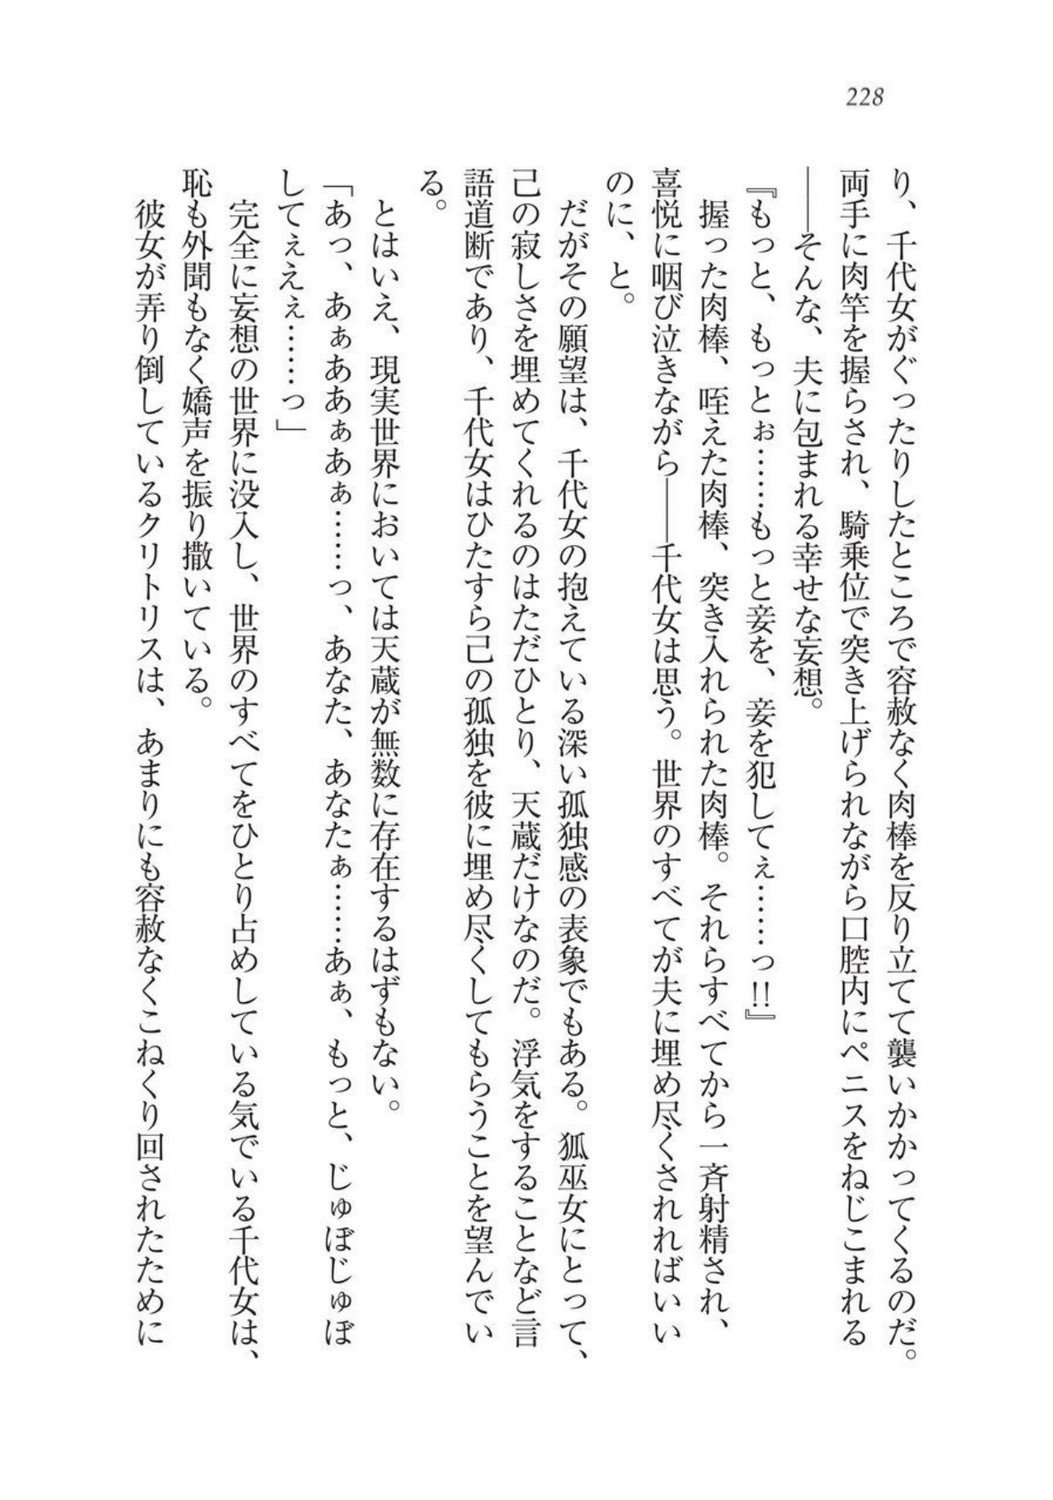 228
り、千代女がぐったりしたところで容赦なく肉棒を反り立てて襲いかかってくるのだ。
両手に肉竿を握らされ、騎乗位で突き上げられながら口腔内にペニスをねじこまれる
――そんな、夫に包まれる幸せな妄想。
『もっと、もっとぉ……もっと妾を、妾を犯してぇ……っ!!』
　握った肉棒、咥えた肉棒、突き入れられた肉棒。それらすべてから一斉射精され、
喜悦に咽び泣きながら――千代女は思う。世界のすべてが夫に埋め尽くされればいい
のに、と。
　だがその願望は、千代女の抱えている深い孤独感の表象でもある。狐巫女にとって、
己の寂しさを埋めてくれるのはただひとり、天蔵だけなのだ。浮気をすることなど言
語道断であり、千代女はひたすら己の孤独を彼に埋め尽くしてもらうことを望んでい
る。
　とはいえ、現実世界においては天蔵が無数に存在するはずもない。
「あっ、あぁああぁあぁ……っ、あなた、あなたぁ……あぁ、もっと、じゅぼじゅぼ
してぇえぇ……っ」
　完全に妄想の世界に没入し、世界のすべてをひとり占めしている気でいる千代女は、
恥も外聞もなく嬌声を振り撒いている。
　彼女が弄り倒しているクリトリスは、あまりにも容赦なくこねくり回されたために